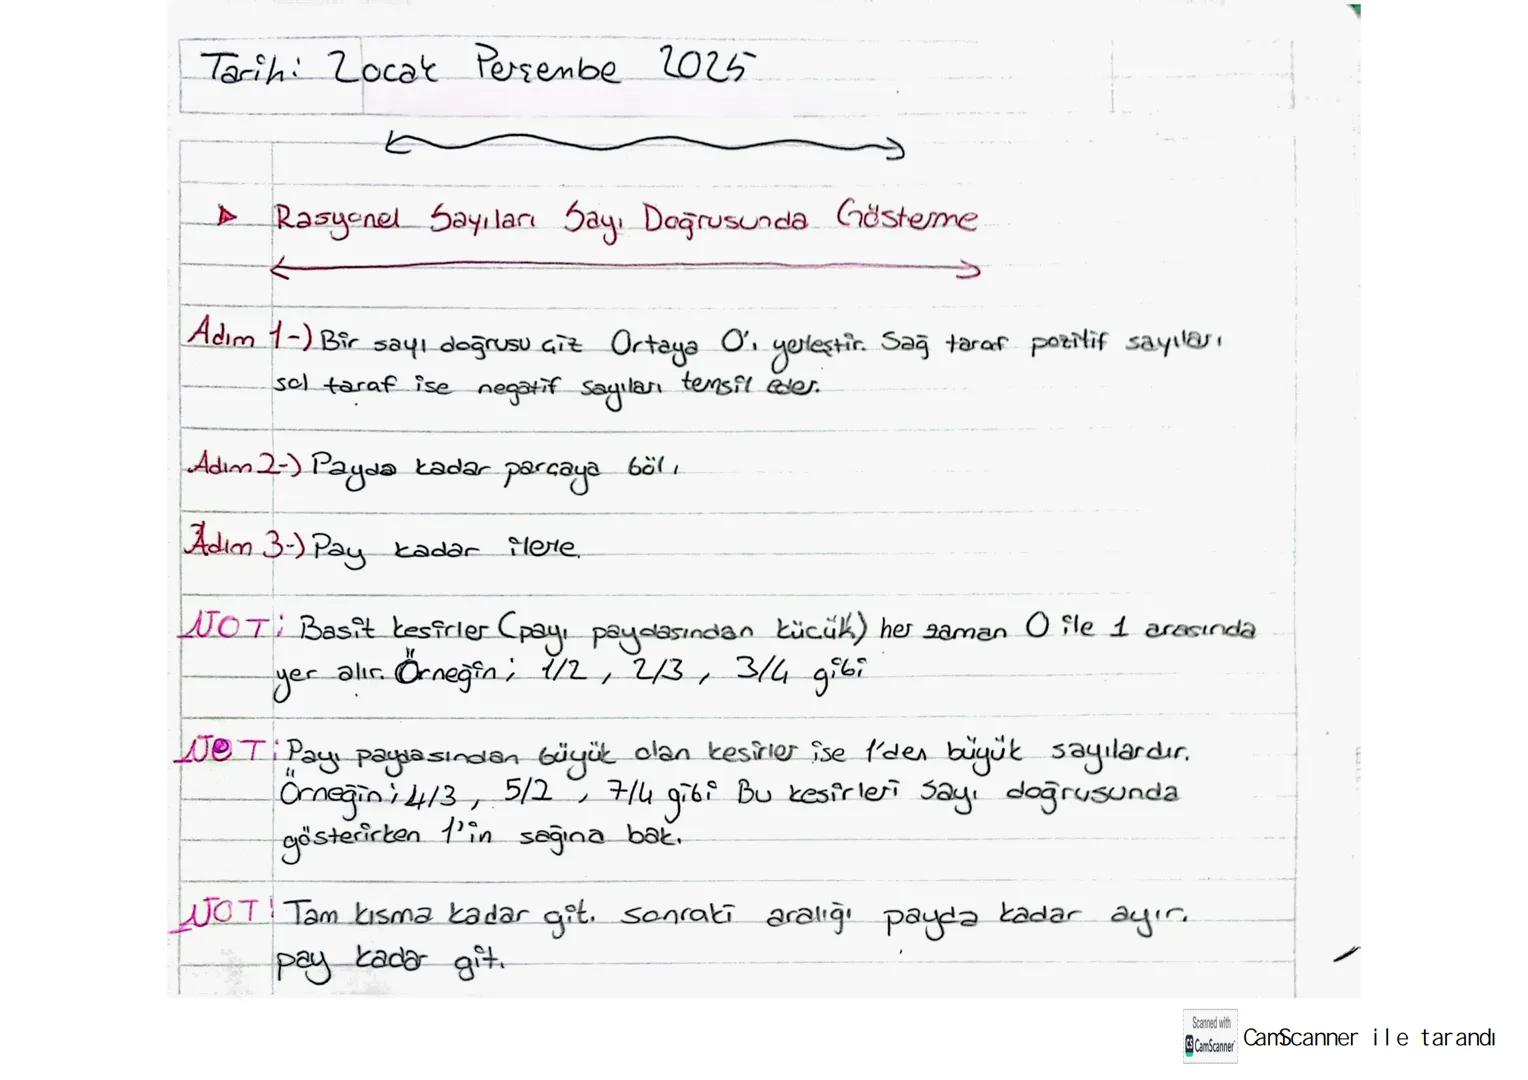 Tarih: 2 Ocak Perşembe 2025
Rasyonel Sayıları Sayı Doğrusunda Gösterme
Adım 1-) Bir sayı doğrusu çiz Ortaya 0'ı yerleştir. Sağ taraf pozitif sayıları
sol taraf ise negatif sayıları temsil eder.
Adım 2-) Payda kadar parçaya böl.
Adım 3-) Pay kadar ilerle.
NOT: Basit kesirler (payı paydasından küçük) her zaman 0 ile 1 arasında
yer alır. Örneğin; 1/2, 2/3, 3/4 gibi
NOT: Payı paydasından büyük olan kesirler ise 1'den büyük sayılardır.
Örneğin; 4/3, 5/2, 7/4 gibi Bu kesirleri Sayı doğrusunda
gösterirken 1'in sağına bak.
NOT! Tam kısma kadar git. sonraki aralığı payda kadar ayır.
pay kadar git.
Scanned with
CS CamScanner
CamScanner ile tarandı